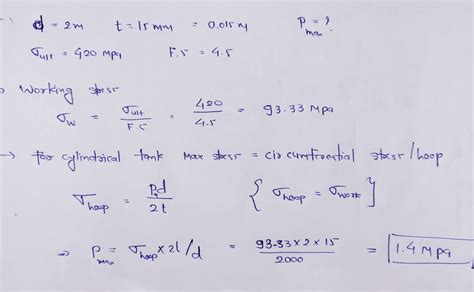 d = 2m t = 15mm = 0.015m P max = ?
σult = 420 Mpa F.S = 4.5
Working stress
σw = σult / F.S = 420 / 4.5 = 93.33 Mpa
→ for cylindrical tank Max stress = circumfrential stress/hoop
σhoop = Pd / 2t { σhoop = σwork }
⇒ P max = σhoop × 2t/d = 93.33×2×15 / 2000 = 1.4 Mpa